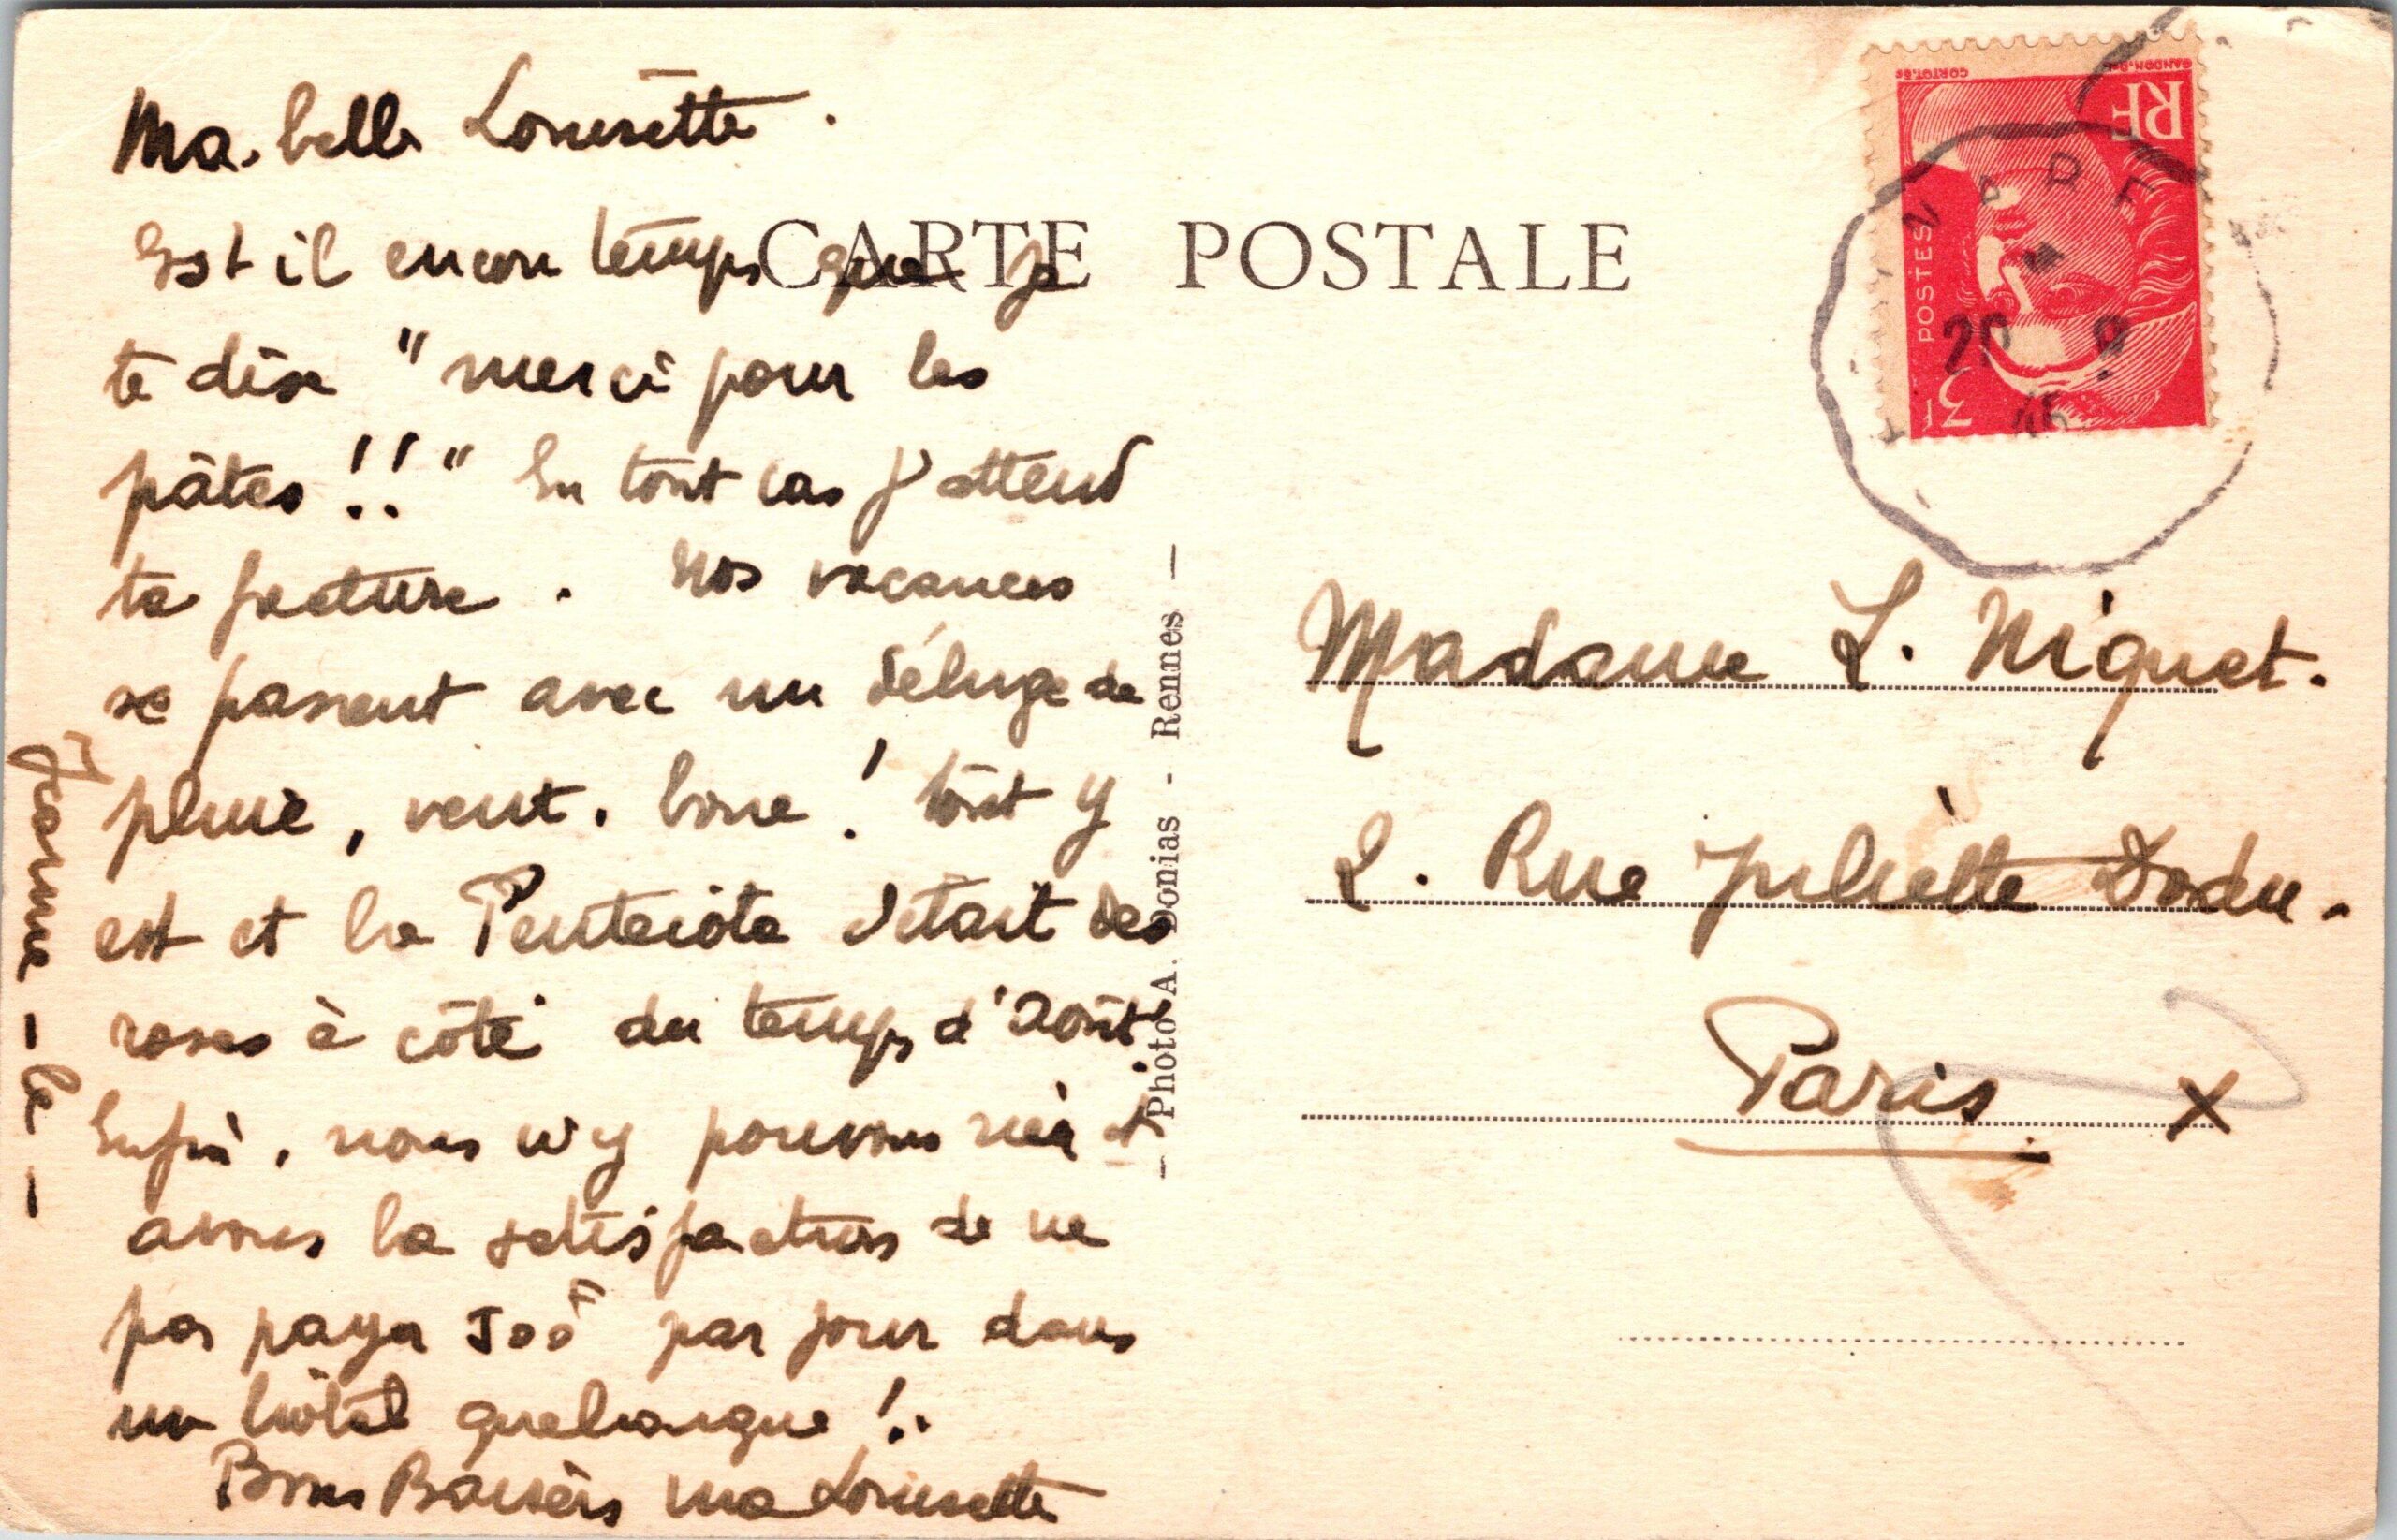 Ma belle Lousette.
Est il encore temps que je
te dise "merci pour les
pâtes !!" En tout cas j'attend
ta facture. Nos vacances
se passent avec un déluge de
pluie, vent. boue ! tout y
est et la Pentecôte était des
roses à côté du temps d'Août.
Enfin, nous n'y pouvons rien et
avons la satisfaction de ne
pas payer 500 par jour dans
un hôtel quelconque !.
Bons Baisers ma Lousette
CARTE POSTALE
- Photo A. Donias - Rennes -
RF
POSTES
3F
CORTOT.GS
GANDON.
20 9
46
Madame L. Niquet.
2. Rue Juliette Dodu.
Paris X